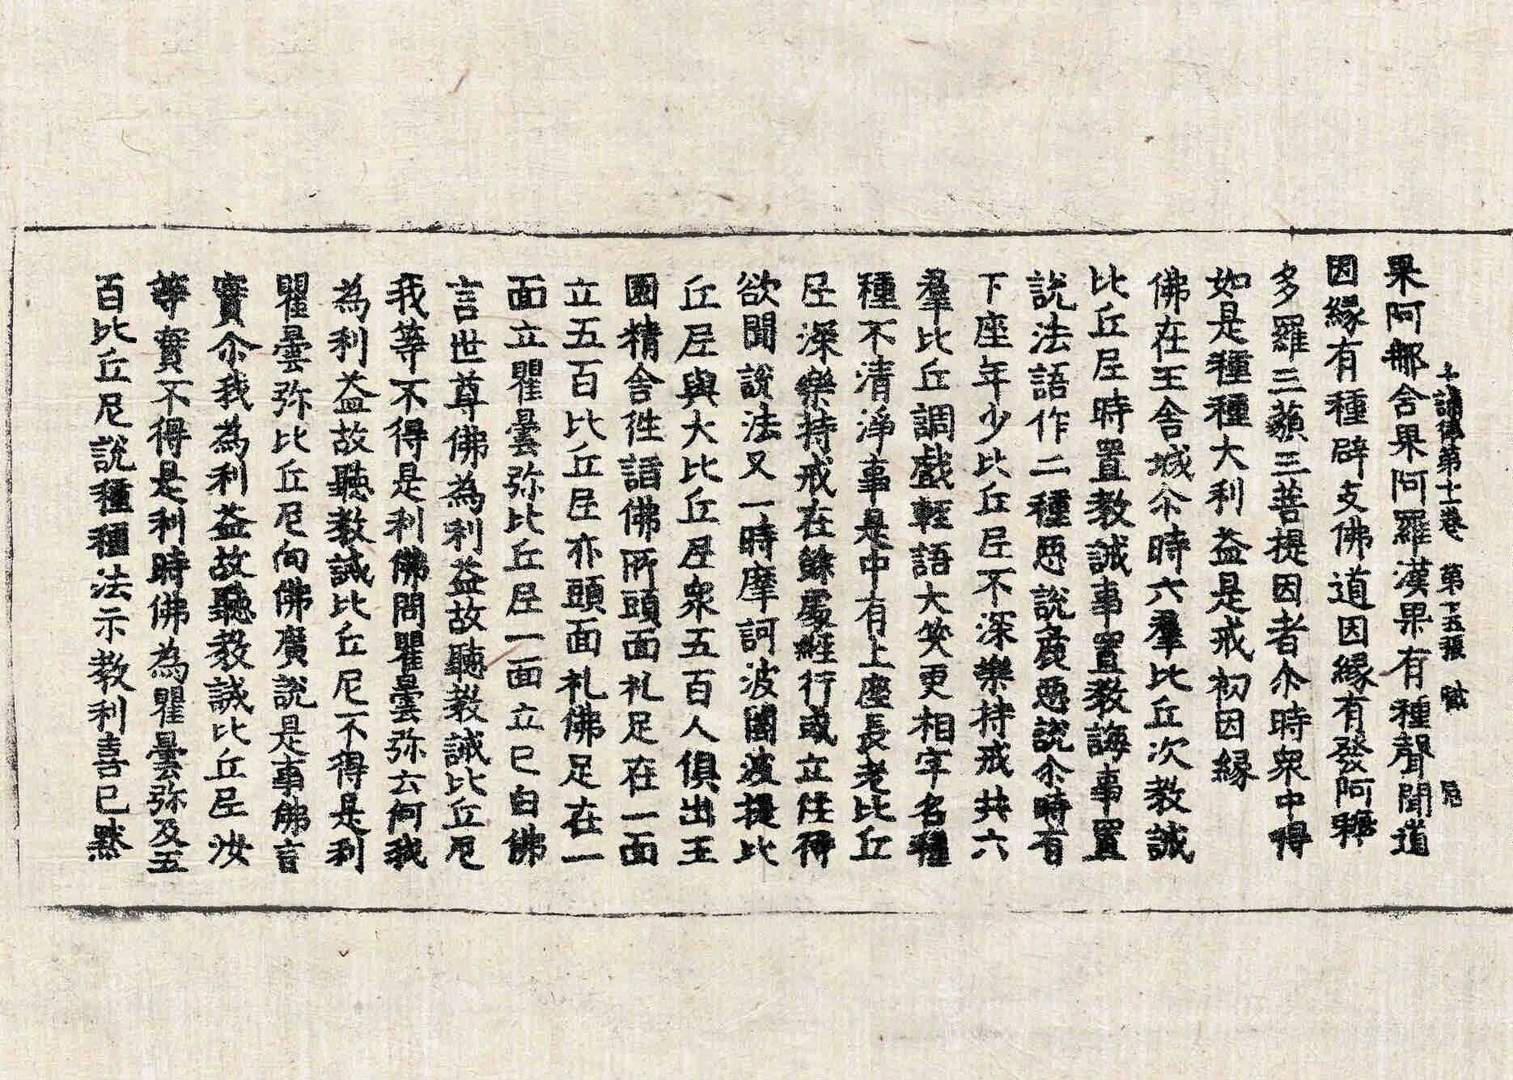 十誦律第十一卷 第十五張 賦
果阿那舍果阿羅漢果有種聲聞道
因緣有種辟支佛道因緣有發阿耨
多羅三藐三菩提因者尒時衆中得
如是種種大利益是戒初因緣
佛在王舍城尒時六羣比丘次教誡
比丘尼時置教誡事置教誨事置
說法語作二種惡說麁惡說尒時有
下座年少比丘尼不深樂持戒共六
羣比丘調戲輕語大笑更相字名種
種不清淨事是中有上座長老比丘
尼深樂持戒在餘處經行或立住待
欲聞說法又一時摩訶波闍波提比
丘尼與大比丘尼衆五百人俱出王
園精舍往詣佛所頭面礼足在一面
立五百比丘尼亦頭面礼佛足在一
面立瞿曇弥比丘尼一面立已白佛
言世尊佛為利益故聽教誡比丘尼
我等不得是利佛問瞿曇弥云何我
為利益故聽教誡比丘尼不得是利
瞿曇弥比丘尼向佛廣說是事佛言
實尒我為利益故聽教誡比丘尼汝
等實不得是利時佛為瞿曇弥及五
百比丘尼說種種法示教利喜已默